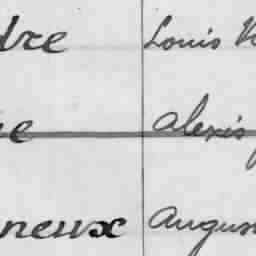 dre Louis
e Alexis
neux Augus